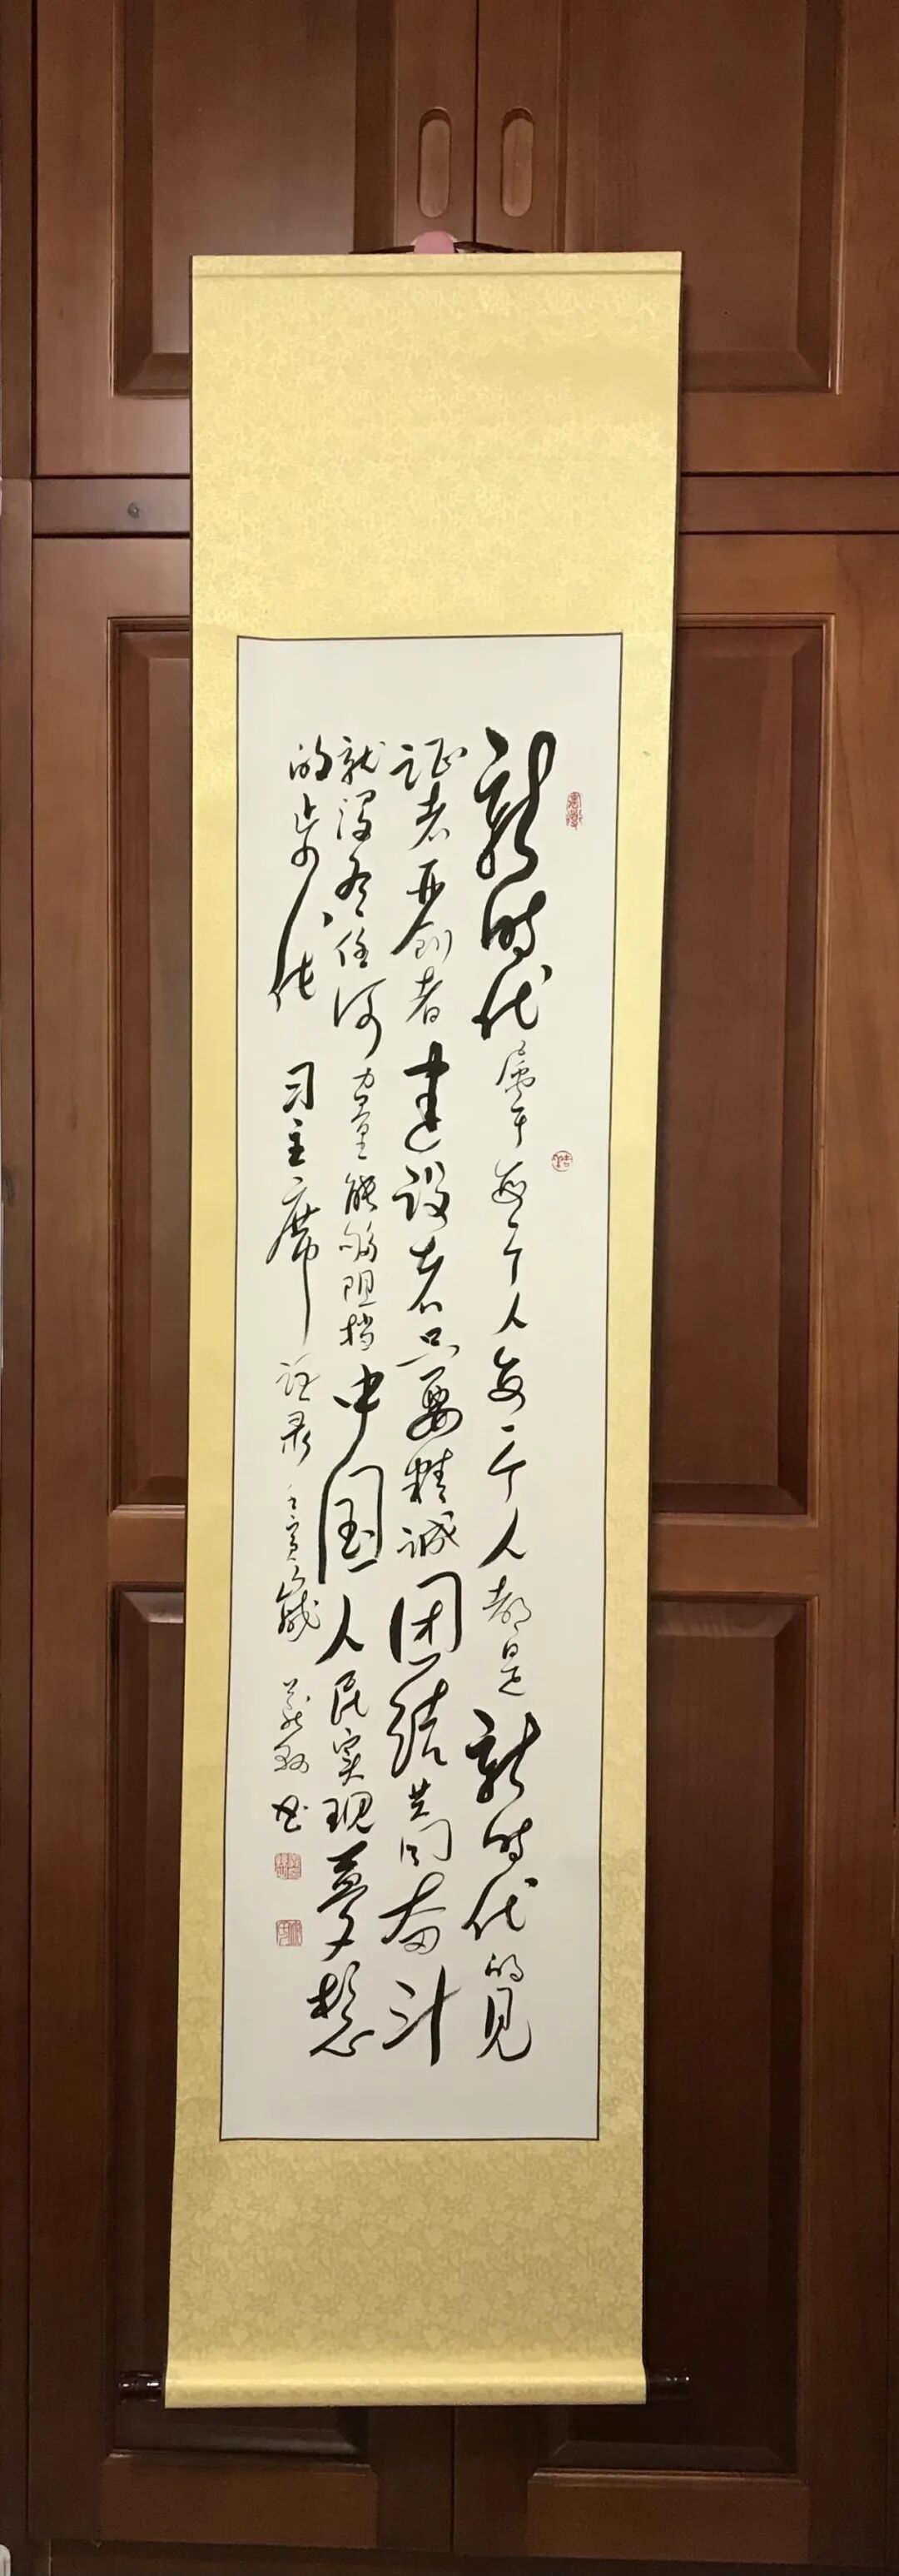 新时代属于每个人每一个人都是新时代的见
证者开创者建设者只要精诚团结共同奋斗
就没有任何力量能够阻挡中国人民实现梦想
的步伐 习主席 语录 壬寅岁 书